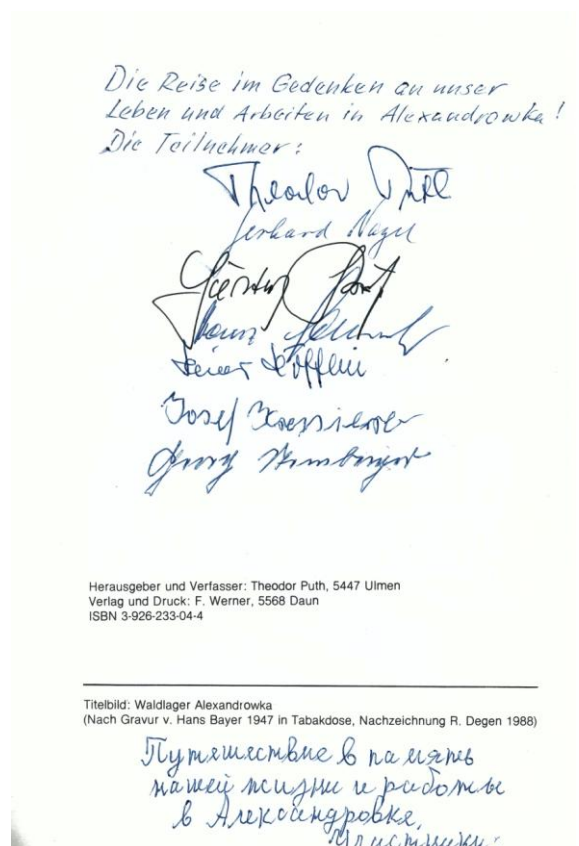 Die Reise im Gedenken an unser
Leben und Arbeiten in Alexandrowka!
Die Teilnehmer:
Theodor Puth
Gerhard Nagel
Josef
Georg
Herausgeber und Verfasser: Theodor Puth, 5447 Ulmen
Verlag und Druck: F. Werner, 5568 Daun
ISBN 3-926-233-04-4
Titelbild: Waldlager Alexandrowka
(Nach Gravur v. Hans Bayer 1947 in Tabakdose, Nachzeichnung R. Degen 1988)
Путешествие в память
нашей жизни и работы
в Александровке.